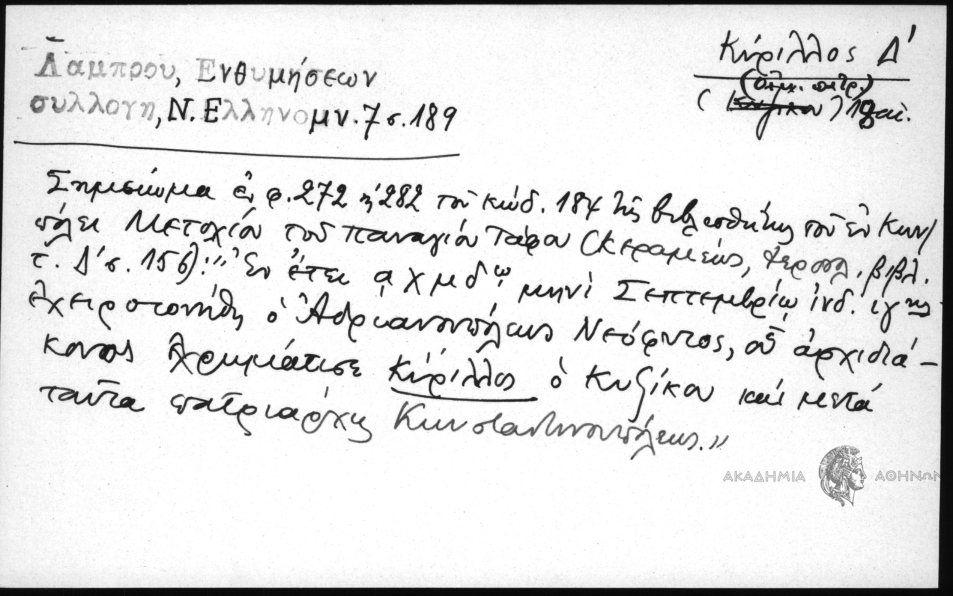 Λαμπρου, Ενθυμήσεων
συλλογη, Ν. Ελληνομν. 7 σ. 189
Κύριλλος Δ'
(οἰκ. πατρ.)
(Κυζίκου) 18 αἰ.
Σημείωμα ἐν φ. 272 ἢ 282 τοῦ κώδ. 184 τῆς βιβλιοθήκης τοῦ ἐν Κων/
πόλει Μετοχίου τοῦ παναγίου Τάφου (Κεραμέως, Ἱεροσολ. βιβλ.
τ. Δ' σ. 156): "Ἐν ἔτει αχμδῳ μηνὶ Σεπτεμβρίῳ ἰνδ. ιγης
ἐχειροτονήθη ὁ Ἀδριανουπόλεως Νεόφυτος, οὗ ἀρχιδιά-
κονος ἐχρημάτισε Κύριλλος ὁ Κυζίκου καὶ μετὰ
ταῦτα πατριάρχης Κωνσταντινουπόλεως."
ΑΚΑΔΗΜΙΑ ΑΘΗΝΩΝ